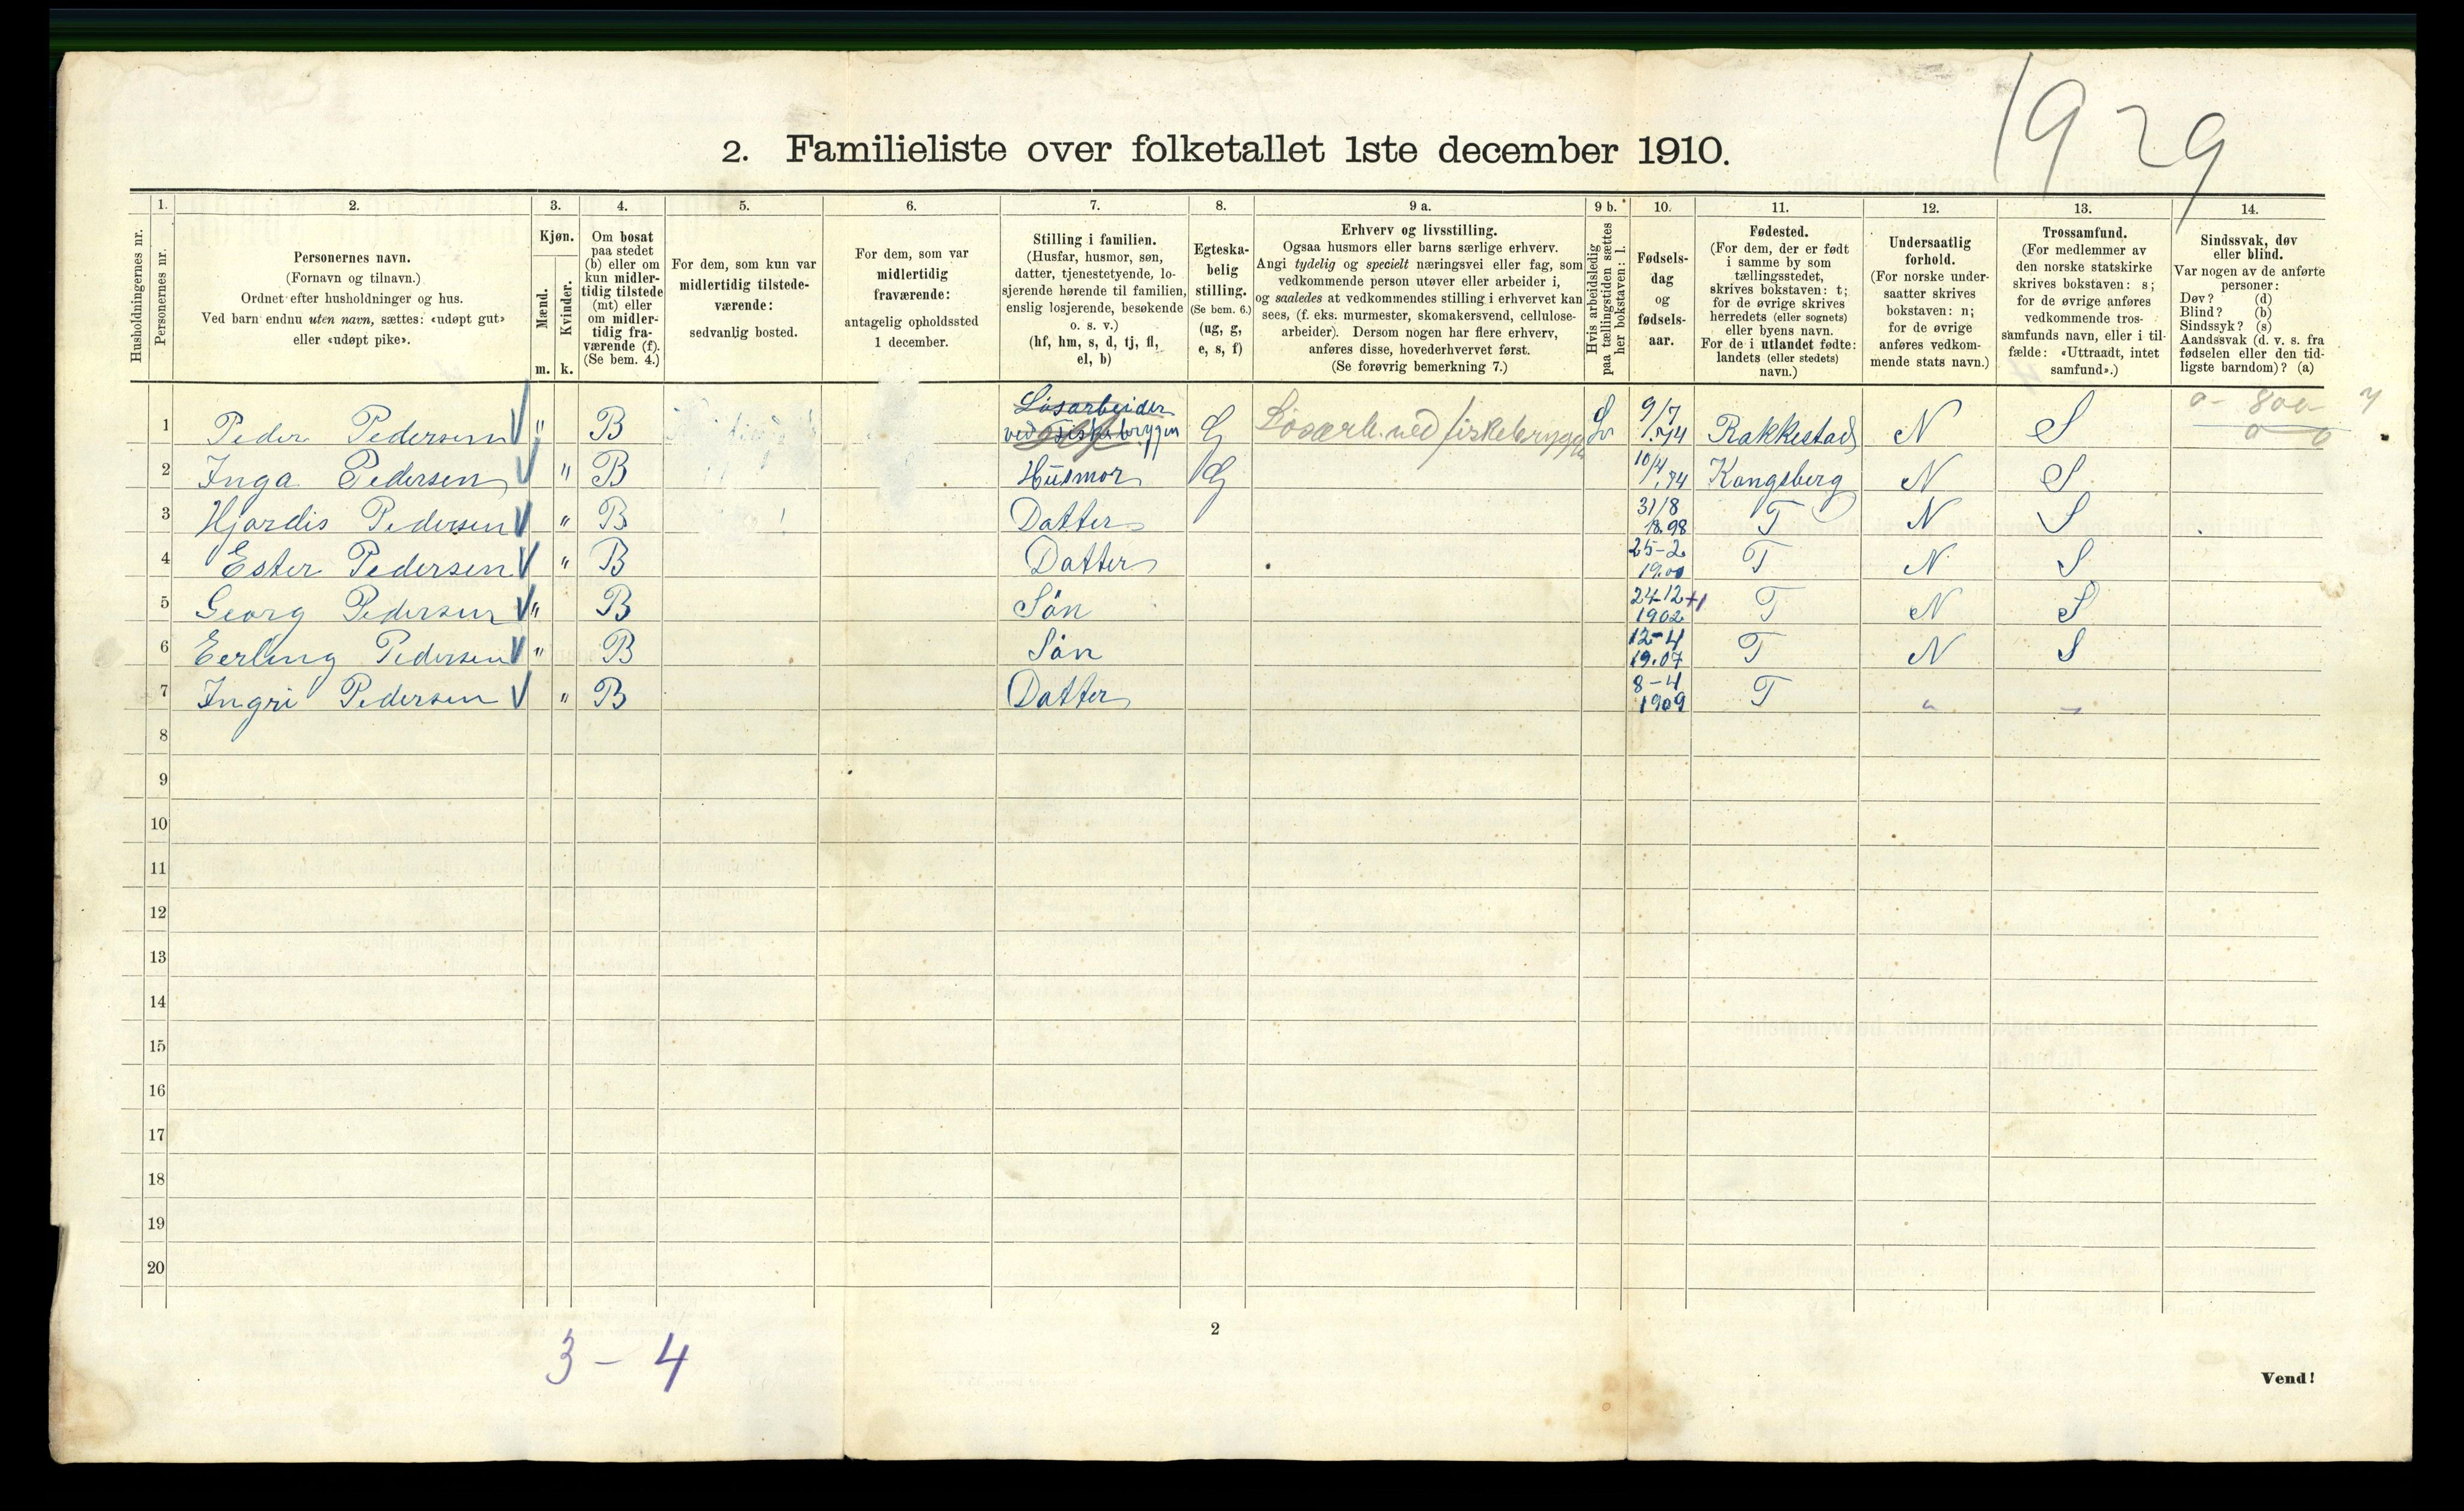 1929
2. Familieliste over folketallet 1ste december 1910.
1. 2. 3. 4. 5. 6. 7. 8. 9 a. 9 b. 10. 11. 12. 13. 14.
Husholdningernes nr.
Personernes nr.
Personernes navn.
(Fornavn og tilnavn.)
Ordnet efter husholdninger og hus.
Ved barn endnu uten navn, sættes: «udøpt gut»
eller «udøpt pike».
Kjøn.
Mænd.
Kvinder.
m. k.
Om bosat
paa stedet
(b) eller om
kun midler-
tidig tilstede
(mt) eller
om midler-
tidig fra-
værende (f).
(Se bem. 4.)
For dem, som kun var
midlertidig tilstede-
værende:
sedvanlig bosted.
For dem, som var
midlertidig
fraværende:
antagelig opholdssted
1 december.
Stilling i familien.
(Husfar, husmor, søn,
datter, tjenestetyende, lo-
sjerende hørende til familien,
enslig losjerende, besøkende
o. s. v.)
(hf, hm, s, d, tj, fl,
el, b)
Egteska-
belig
stilling.
(Se bem. 6.)
(ug, g,
e, s, f)
Erhverv og livsstilling.
Ogsaa husmors eller barns særlige erhverv.
Angi tydelig og specielt næringsvei eller fag, som
vedkommende person utøver eller arbeider i,
og saaledes at vedkommendes stilling i erhvervet kan
sees, (f. eks. murmester, skomakersvend, cellulose-
arbeider). Dersom nogen har flere erhverv,
anføres disse, hovederhvervet først.
(Se forøvrig bemerkning 7.)
Hvis arbeidsledig
paa tællingstiden sættes
her bokstaven: l.
Fødsels-
dag
og
fødsels-
aar.
Fødested.
(For dem, der er født
i samme by som
tællingsstedet,
skrives bokstaven: t;
for de øvrige skrives
herredets (eller sognets)
eller byens navn.
For de i utlandet fødte:
landets (eller stedets)
navn.)
Undersaatlig
forhold.
(For norske under-
saatter skrives
bokstaven: n;
for de øvrige
anføres vedkom-
mende stats navn.)
Trossamfund.
(For medlemmer av
den norske statskirke
skrives bokstaven: s;
for de øvrige anføres
vedkommende tros-
samfunds navn, eller i til-
fælde: «Uttraadt, intet
samfund».)
Sindssvak, døv
eller blind.
Var nogen av de anførte
personer:
Døv? (d)
Blind? (b)
Sindssyk? (s)
Aandssvak (d. v. s. fra
fødselen eller den tid-
ligste barndom)? (a)
Løsarbeider 9/7 0- 800-
1 Peder Pedersen " B ved Fiskebryggen G Løsarb. ved fiskebrygge 74 Rakkestad N S 0 0
2 Inga Pedersen " B Husmor G 10/4 74 Kongsberg N S
3 Hjordis Pedersen " B Datter 31/8 18.98 T N S
4 Ester Pedersen " B Datter 25-2 19.00 T N S
5 Georg Pedersen " B Sön 24-12 1902 T N S
6 Eerling Pedersen " B Sön 12-4 19.07 T N S
7 Ingri Pedersen " B Datter 8-4 1909 T " -
8
9
10
11
12
13
14
15
16
17
18
19
20
3 - 4
2
Vend!